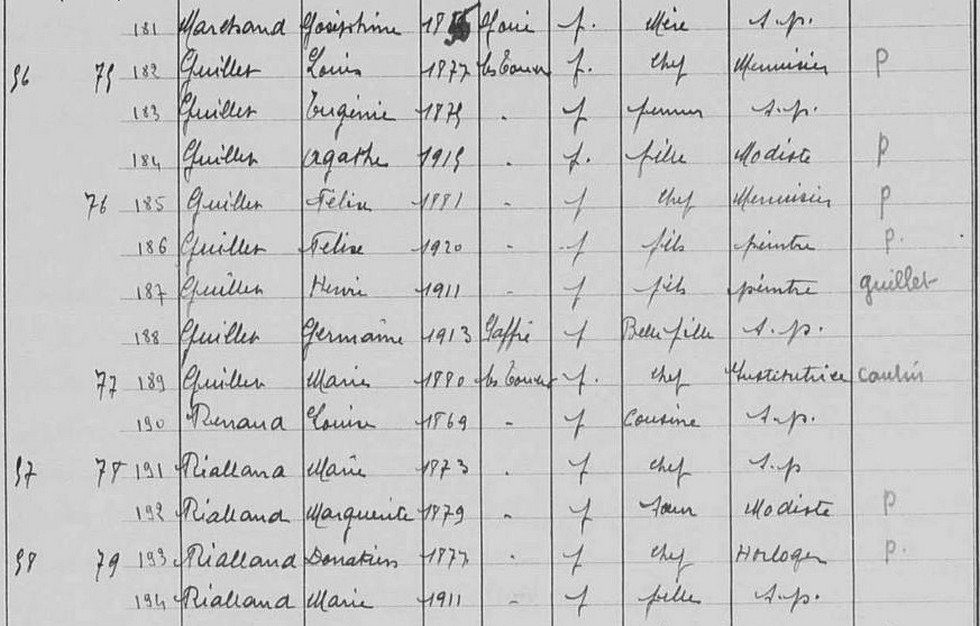 181 Marchand Joséphine 18 f. Mère S.p.
56 75 182 Guillet Louis 1877 les Touches f. chef Menuisier p
183 Guillet Eugénie 1875 . f femme S.p.
184 Guillet Agathe 1915 . f. fille Modiste p
76 185 Guillet Félix 1881 - f chef Menuisier p
186 Guillet Félix 1920 - f fils peintre p.
187 Guillet Henri 1911 f fils peintre guillet
188 Guillet Germaine 1913 f Belle fille S.p.
77 189 Guillet Marie 1880 les Touches f. chef Institutrice
190 Renaud Louise 1869 - f Cousine S.p.
57 78 191 Rialland Marie 1873 . f chef S.p
192 Rialland Marguerite 1879 - f soeur Modiste p
58 79 193 Rialland Donatien 1877 . f chef Horloger p.
194 Rialland Marie 1911 - f fille S.p.